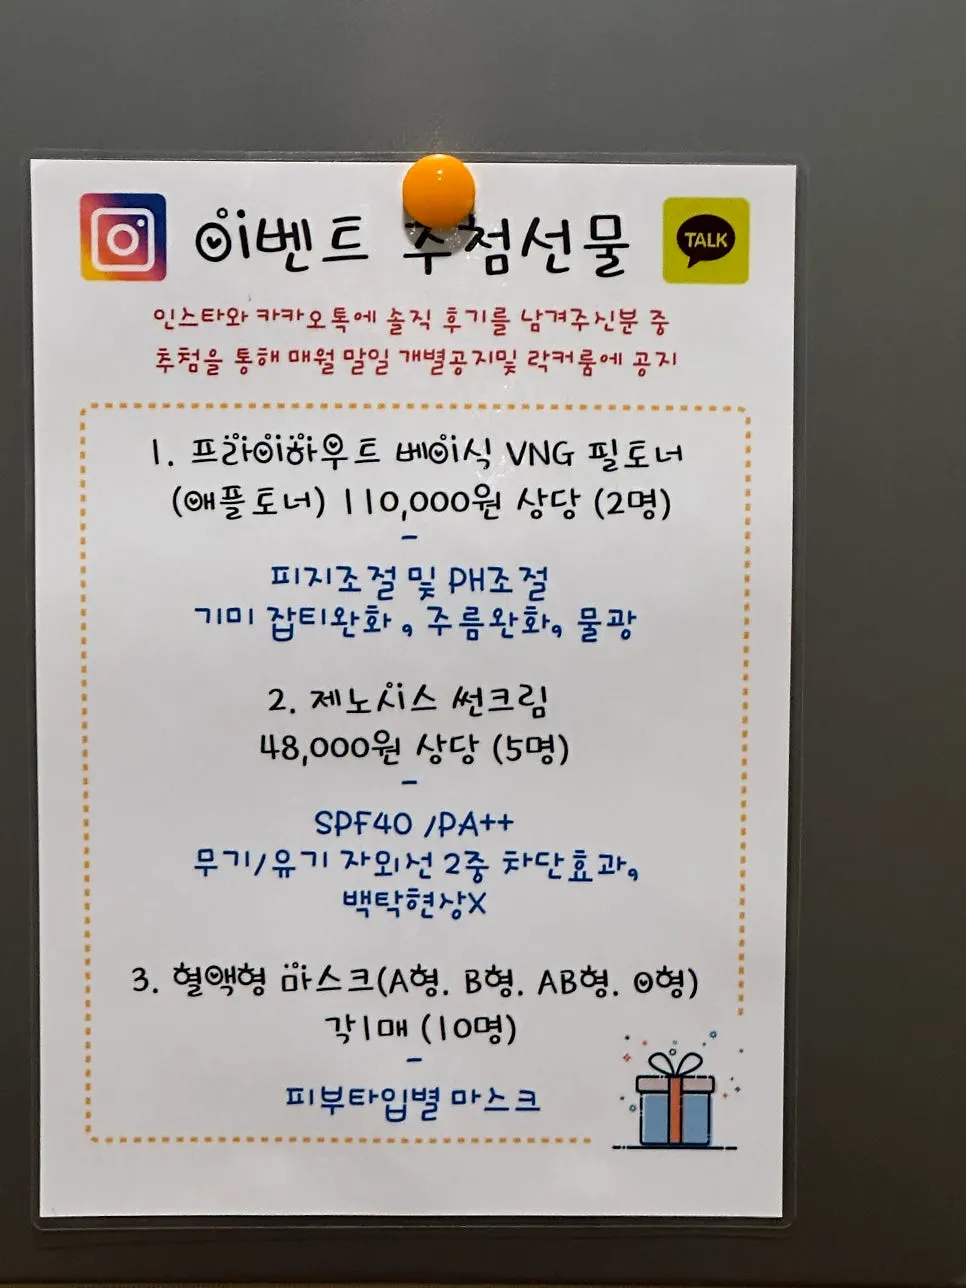 이벤트 추첨선물
TALK
인스타와 카카오톡에 솔직 후기를 남겨주신분 중
추첨을 통해 매월 말일 개별공지및 락커룸에 공지
1. 프라이하우트 베이식 VNG 필토너
(애플토너) 110,000원 상당 (2명)
-
피지조절 및 PH조절
기미 잡티완화, 주름완화, 물광
2. 제노시스 썬크림
48,000원 상당 (5명)
-
SPF40 /PA++
무기/유기 자외선 2중 차단효과,
백탁현상X
3. 혈액형 마스크(A형. B형. AB형. O형)
각1매 (10명)
-
피부타입별 마스크